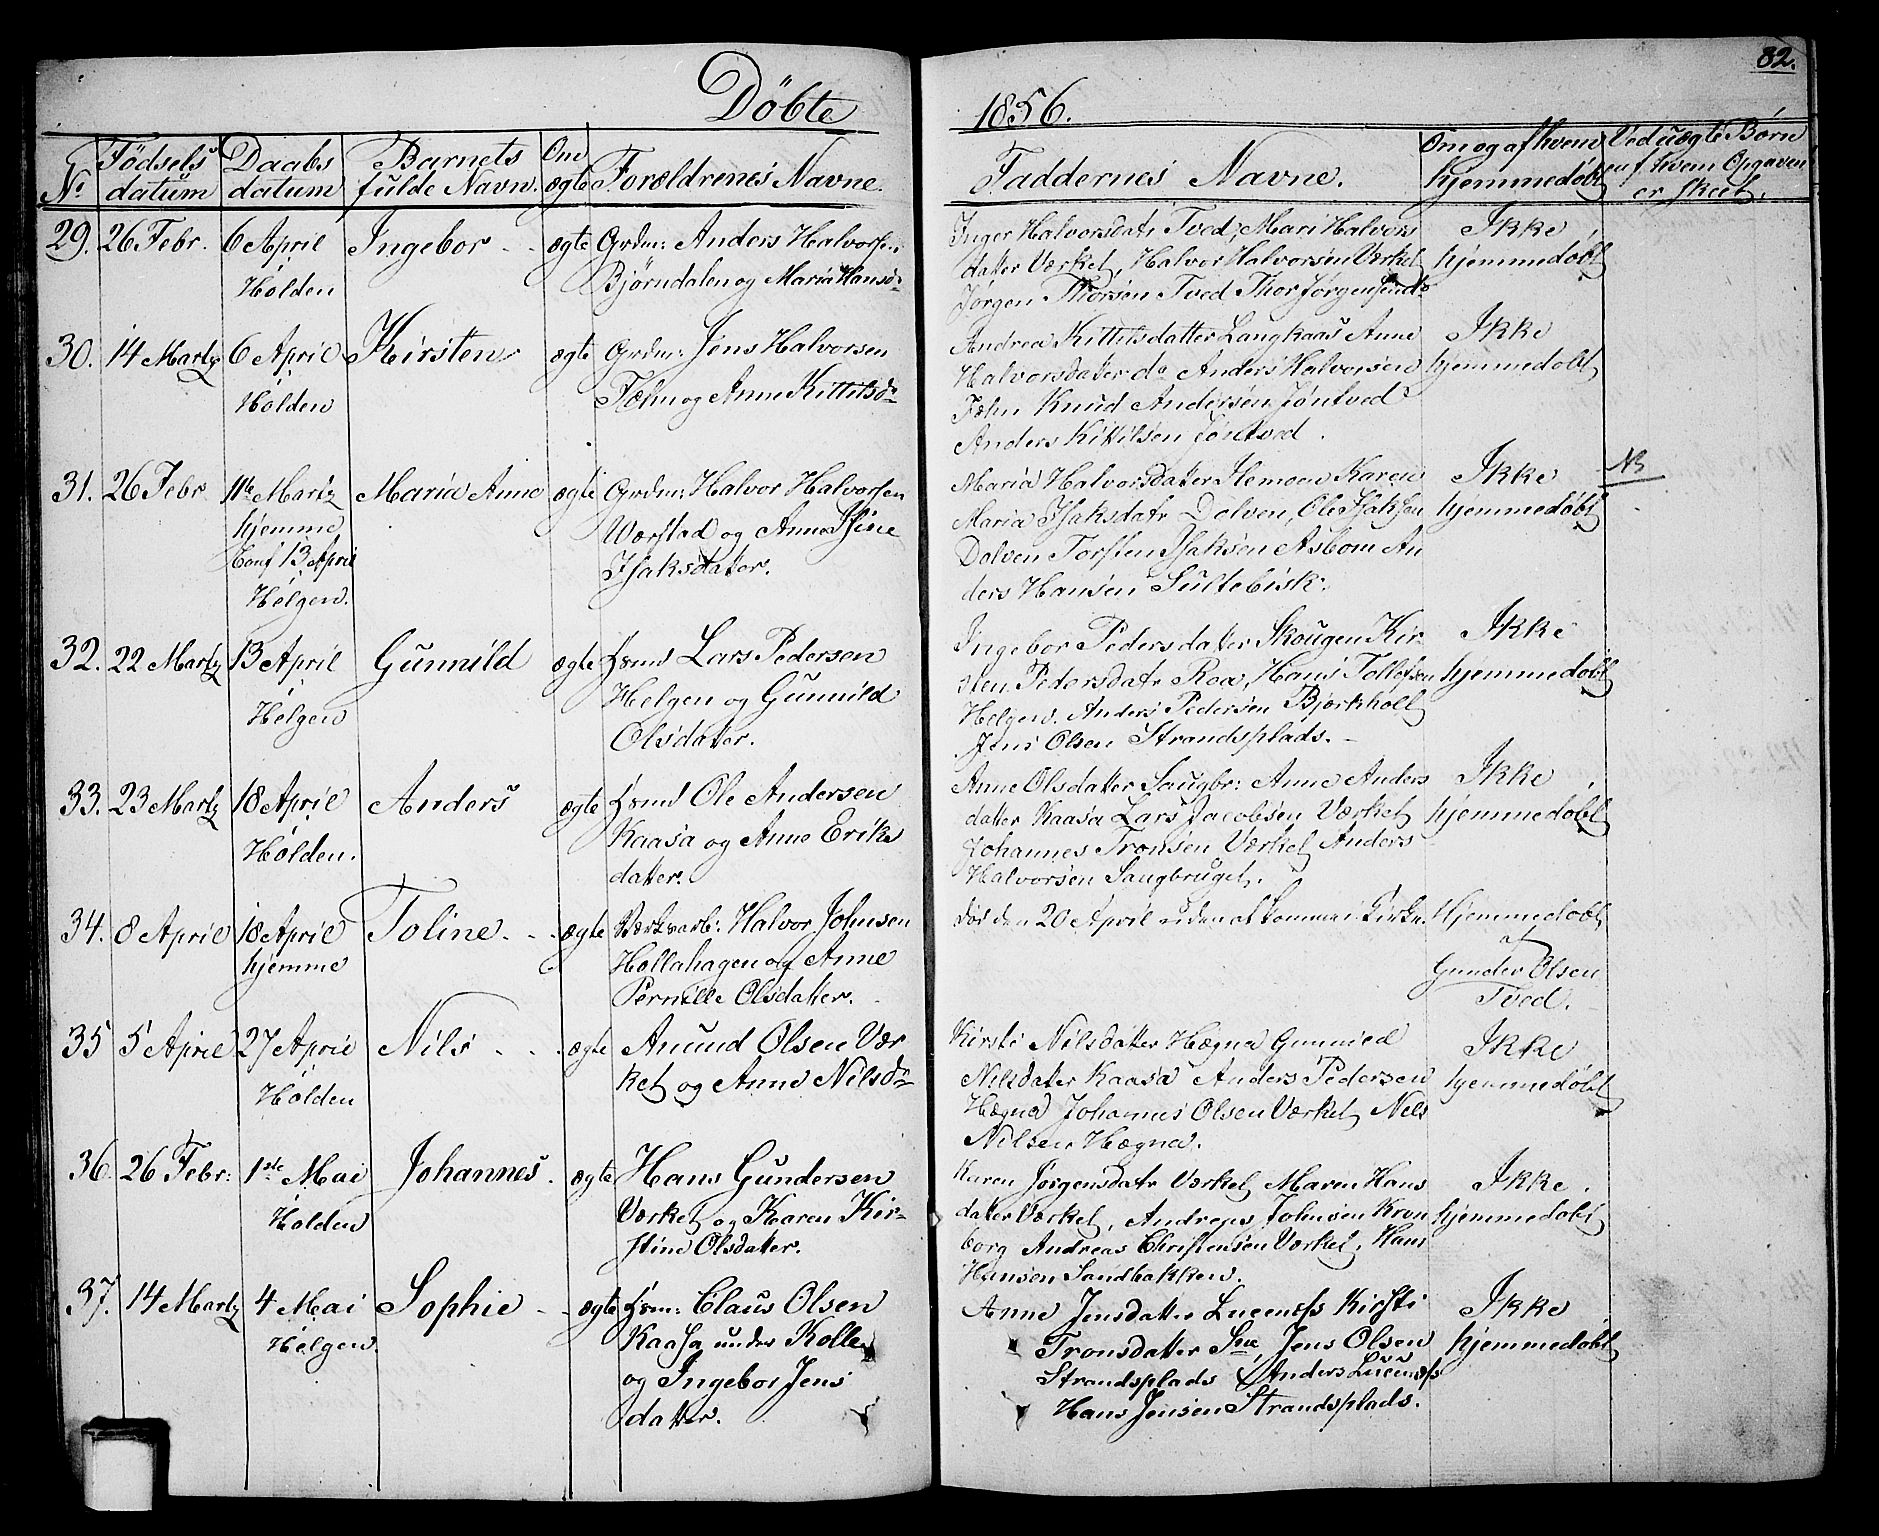 82.
Döbte
1856.
No
Födsels
datum
Daabs
datum
Barnets
fulde Navn.
Om
ægte
Forældrenes Navne.
Faddernes Navne.
Om og af hvem
hjemmedøbt
Ved uægte Børn
af hvem Opgaven
er skeet.
29. 26 Febr. 6 April
Holden
Ingebor - - ægte
Grdm: Anders Halvorsen
Bjørndalen og Maria Hansd:
Inger Halvorsdatr Tved, Mari Halvors
datter Værket, Halvor Halvorsen Værket
Jørgen Thorsen Tved Thor Jørgensen do
Ikke
hjemmedøbt
30. 14 Martz 6 April
Holden
Kirsten ægte
Grdm: Jens Halvorsen
Fæhn og Anne Kittilsdr
Andrea Kittilsdatter Langkaas Anne
Halvorsdatter do Anders Halvorsen
Fæhn Knud Andersen Jøntved
Anders Kittilsen Jøntved.
Ikke
hjemmedøbt
31. 26 Febr. 11te Martz
hjemme
Conf 13 April
Helgen.
Maria Anne ægte
Grdm: Halvor Halvorsen
Værstad og Anne
Isaksdatter.
Maria Halvorsdatter Karen
Maria Isaksdatr Dolven, Ole Isaksen
Dolven Torsten Isaksen Asbom An
ders Hansen Sultebisk.
Ikke
hjemmedøbt
NB
32. 22 Martz 13 April
Helgen
Gunnild ægte
Hsmd Lars Pedersen
Helgen og Gunnild
Olsdatter.
Ingebor Pedersdatter Skougen Kir-
sten Pedersdatr Roa, Hans Tollefsen
Helgen. Anders Pedersen Bjørkholt
Jens Olsen Strandsplads. -
Ikke
hjemmedøbt
33. 23 Martz 18 April
Holden.
Anders ægte
Hsmd Ole Andersen
Kaasa og Anne Eriks
datter.
Anne Olsdatter Saugbr: Anne Anders
datter Kaasa Lars Jacobsen Værket
Johannes Tronsen Værket Anders
Halvorsen Saugbruget.
Ikke
hjemmedøbt
34. 8 April 18 April
hjemme
Toline. - - ægte
Værksarb: Halvor Johnsen
Hollahagen og Anne
Pernille Olsdatter.
død den 20 April uden at komme i Kirke.
Hjemmedøbt
af
Gunder Olsen
Tved.
35 5 April 27 April
Holden
Nils - - ægte
Amund Olsen Vær
ket og Anne Nilsdr
Kirsti Nilsdatter Hægna Gunnild
Nilsdatter Kaasa Anders Pedersen
Hægna Johannes Olsen Værket Nels
Nilsen Hægna.
Ikke
hjemmedøbt
36. 26 Febr: 1ste Mai
Holden
Johannes. ægte
Hans Gundersen
Værket og Karen Kir-
stine Olsdatter.
Karen Jørgensdatr Værket Maren Hans
datter Værket, Andreas Johnsen Kron
borg Andreas Christensen Værket. Hans
Hansen Sandbakken.
Ikke
hjemmedøbt
37. 14 Martz 4 Mai
Helgen
Sophie - - ægte
Hsm: Claus Olsen
Kaasa under Kolle
og Ingebor Jens
datter.
Anne Jensdatter Kirsti
Tronsdatter Jens Olsen
Strandsplads Anders
Hans Jensen Strandsplads.
Ikke
hjemmedøbt